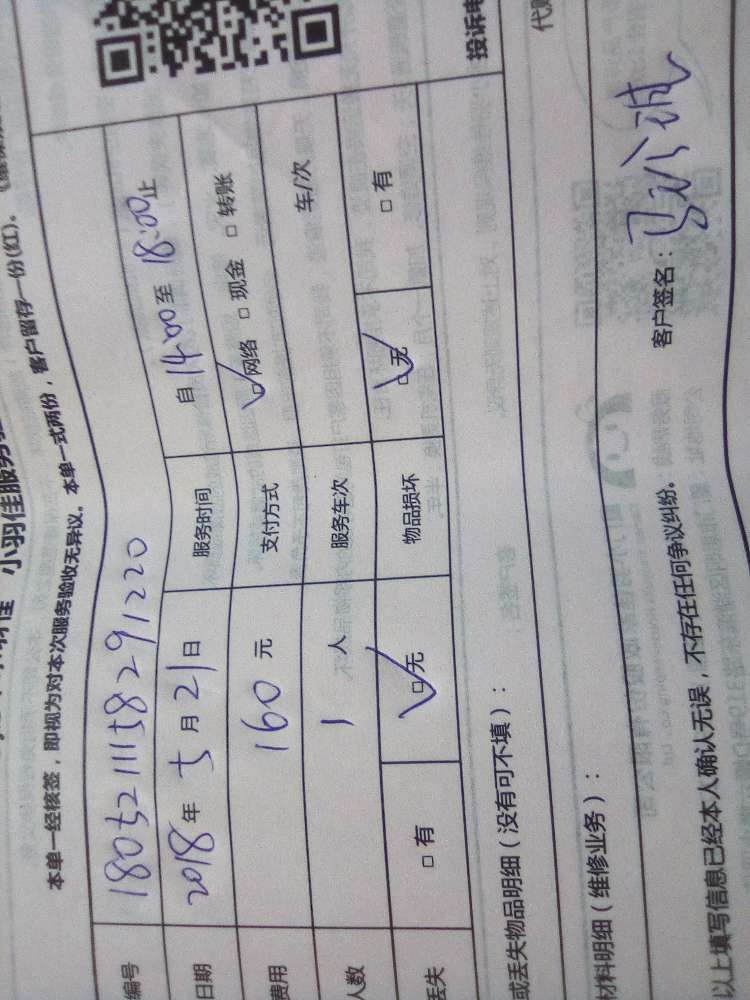 小羽佳服务
本单一经核签，即视为对本次服务验收无异议。本单一式两份，客户留存一份(红)。
编号 1805211158291220
日期 2018年 5月 21日 服务时间 自 14:00 至 18:00 止
费用 160 元 支付方式 ☑网络 □现金 □转账
人数 1 人 服务车次 车/次
丢失 □有 ☑无 物品损坏 ☑无 □有
或丢失物品明细（没有可不填）： 投诉电
材料明细（维修业务）：
以上填写信息已经本人确认无误，不存在任何争议纠纷。 客户签名：